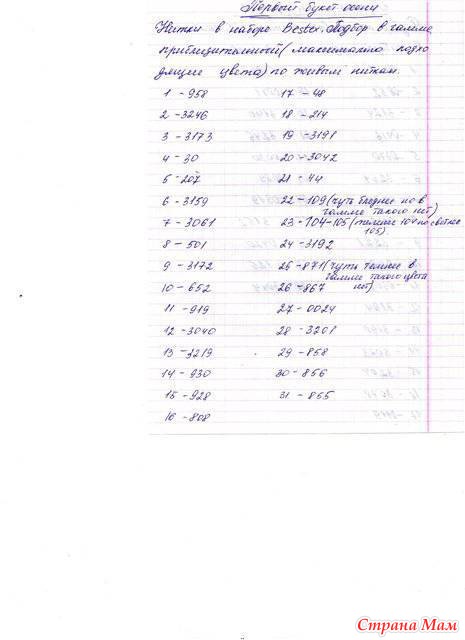 Первый букет осени
Нитки в наборе Bestex. Подбор в гамме
приблизительный (максимально подхо
дящие цвета) по живым ниткам.
1 - 958
2 - 3246
3 - 3173
4 - 30
5 - 207
6 - 3159
7 - 3061
8 - 501
9 - 3172
10 - 652
11 - 919
12 - 3040
13 - 3219
14 - 930
15 - 928
16 - 808
17 - 48
18 - 214
19 - 3191
20 - 3042
21 - 44
22 - 109 (чуть бледнее но в
гамме такого нет)
23 - 104-105 (темнее 104 но светлее
105)
24 - 3192
25 - 871 (чуть темнее в
гамме такого цвета
нет)
26 - 867
27 - 0024
28 - 3201
29 - 858
30 - 856
31 - 855
Страна Мам